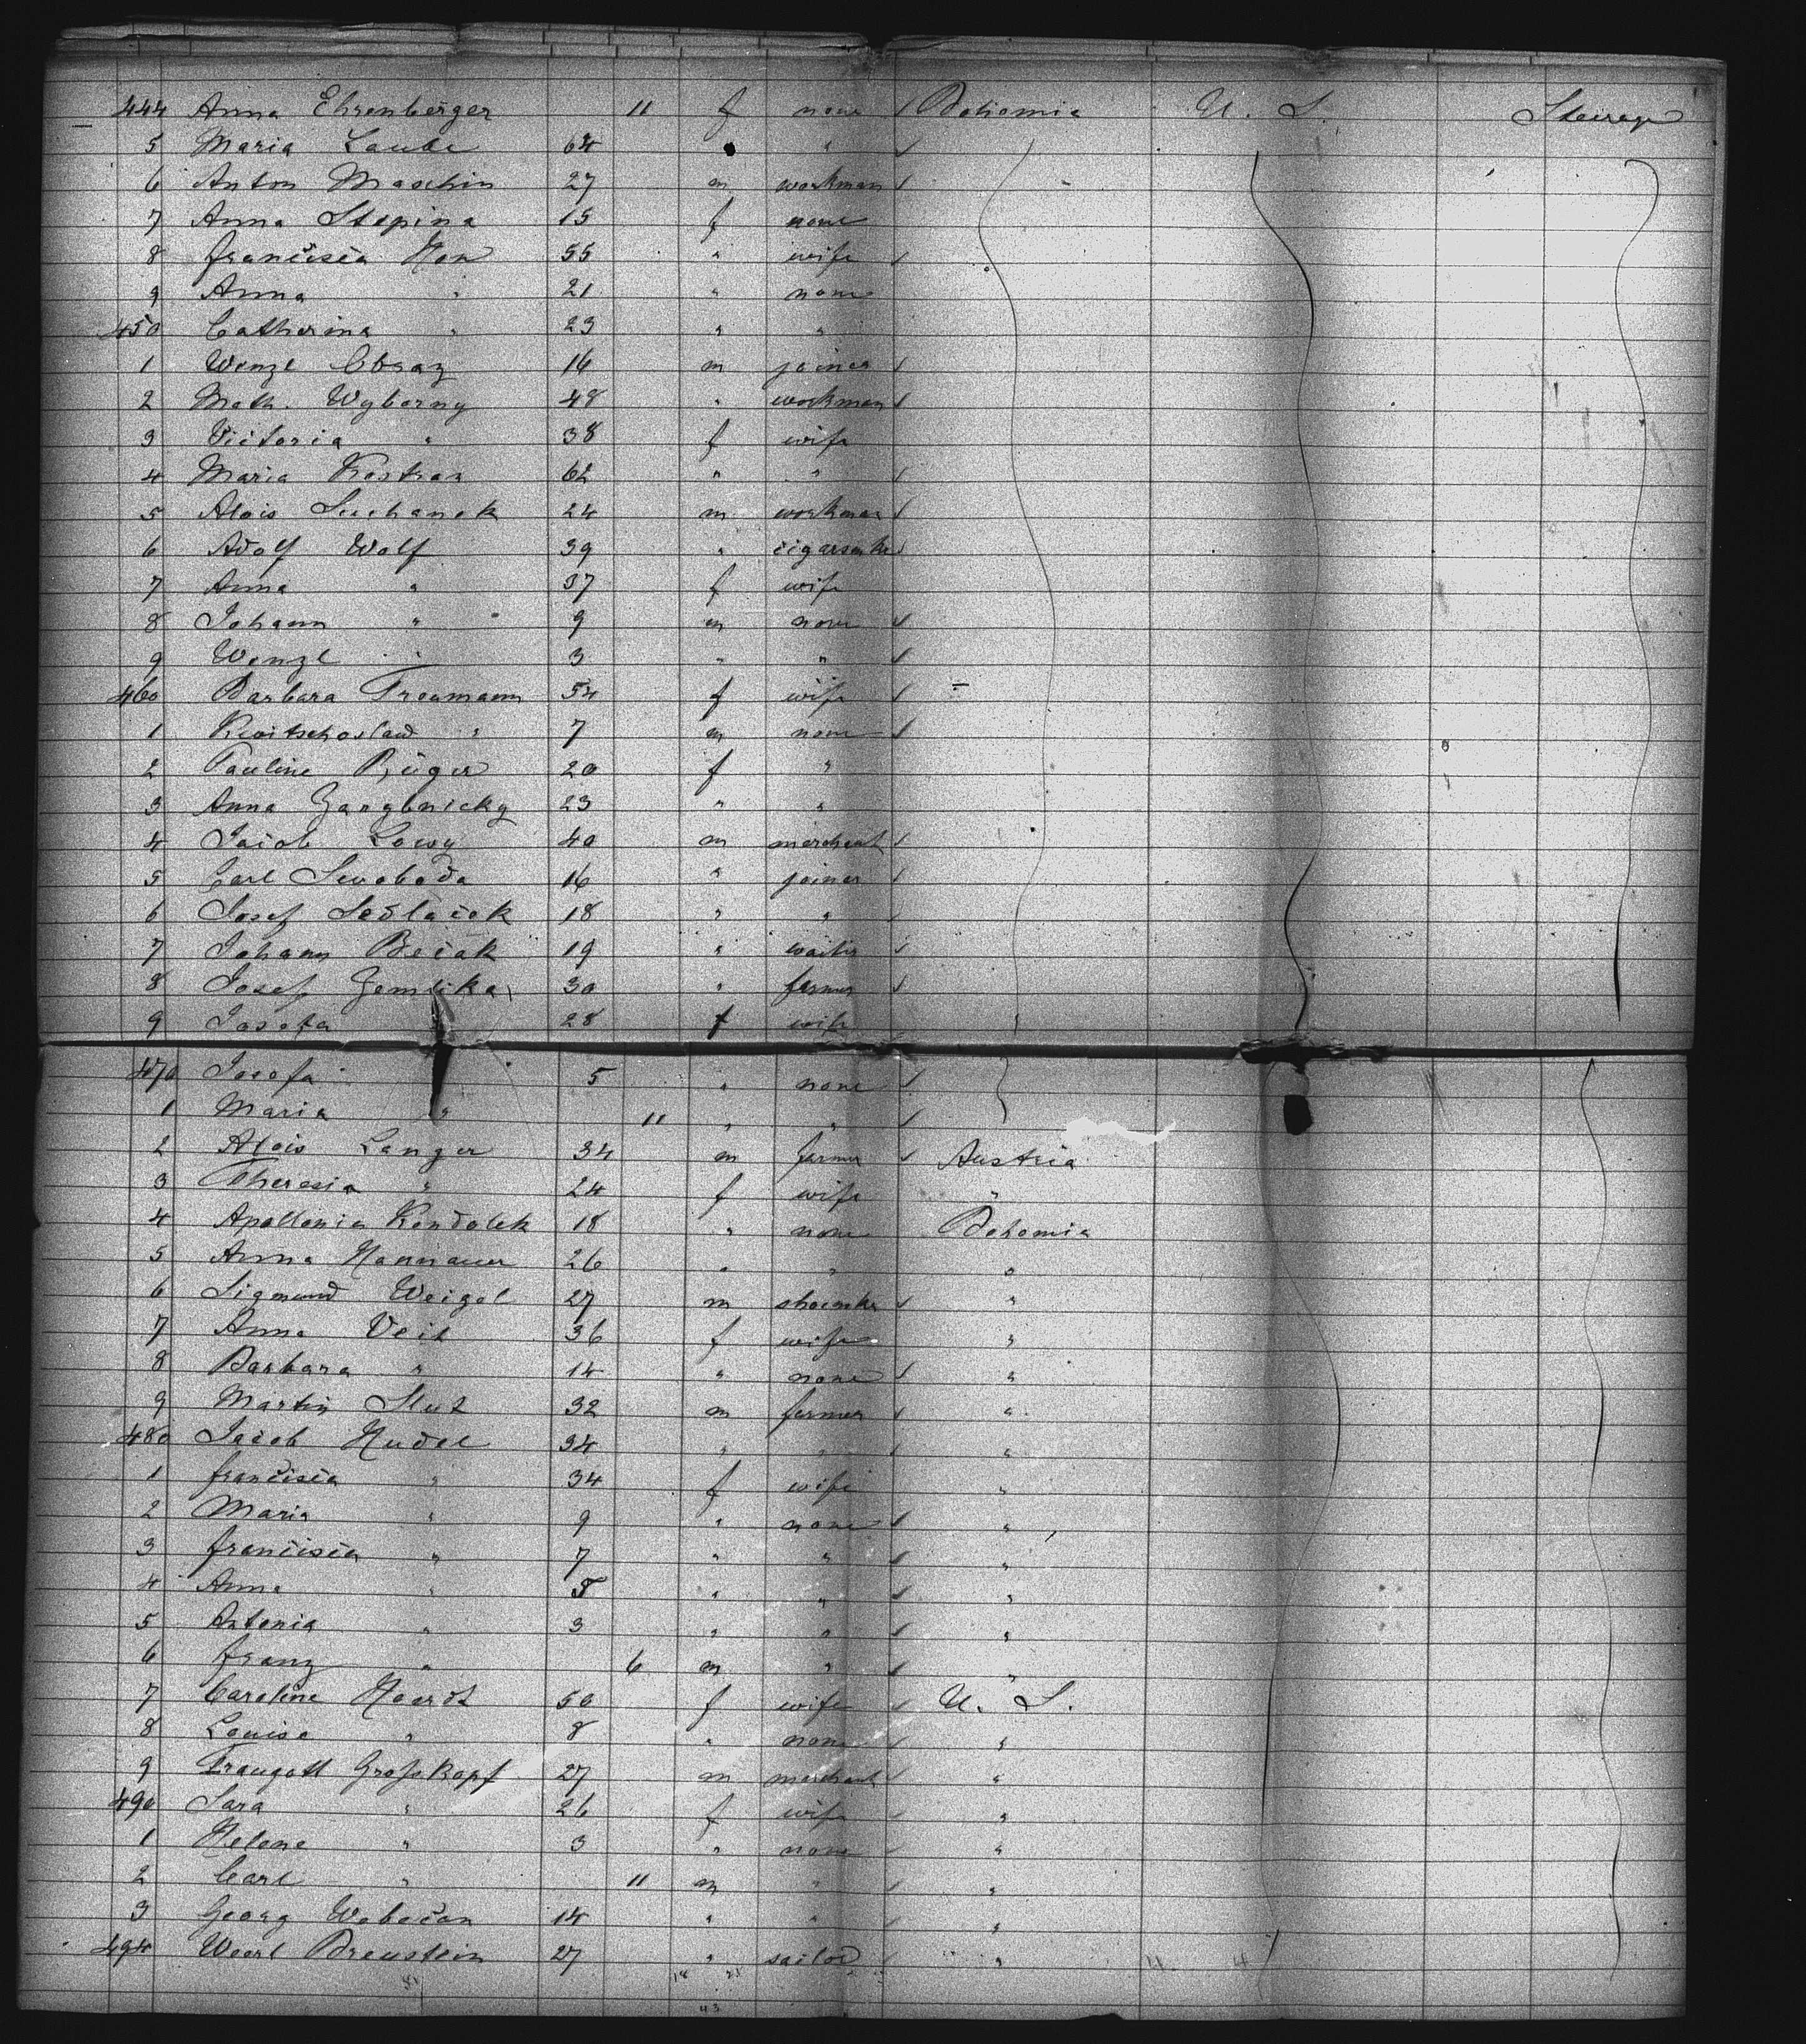 444 Anna Ehrenberger 11 f none Bohemia U. S. Steerage
5 Maria Laube 64 " "
6 Anton Maschin 27 m workman
7 Anna Stepina 15 f none
8 Francisca Hon 55 " wife
9 Anna " 21 " none
450 Catharina " 23 " "
1 Wenzl Obraz 16 m joiner
2 Math. Wyborny 48 " workman
3 Victoria " 38 f wife
4 Maria Kostran 62 " "
5 Alois Suchanek 24 m workman
6 Adolf Wolf 39 " cigarsmkr
7 Anna " 37 f wife
8 Johann " 9 m none
9 Wenzl " 3 " "
460 Barbara Freumann 54 f wife
1 Kwitschoslaud " 7 m none
2 Pauline 20 f "
3 Anna 23 " "
4 Jacob Lowy 40 m merchant
5 Carl Swoboda 16 " joiner
6 Josef Sedlacek 18 " "
7 Johann Becak 19 " waiter
8 Josef Zemlika 30 " farmer
9 Josefa 28 f wife
470 Josefa 5 " none
1 Maria " 11 " "
2 Alois Langer 34 m farmer Austria
3 Theresia " 24 f wife "
4 Apollonia Kondolek 18 " none Bohemia
5 Anna Hannauer 26 " " "
6 Sigmund Weigel 27 m shoemkr "
7 Anna Veit 36 f wife "
8 Barbara " 14 " none "
9 Martin Slut 32 m farmer "
480 Jacob Hudel 34 " " "
1 Francisca " 34 f wife "
2 Maria " 9 " none "
3 Francisca " 7 " " "
4 Anna " 5 " " "
5 Antonia " 3 " " "
6 Franz " 6 m " "
7 Caroline Haerdt 50 f wife U. S.
8 Louise " 8 " none "
9 Traugott Großkopf 27 m merchant "
490 Sara " 26 f wife "
1 Helene " 3 " none "
2 Carl " 11 m " "
3 Georg Wobocan 14 " " "
494 Weert Breustein 27 " sailor "